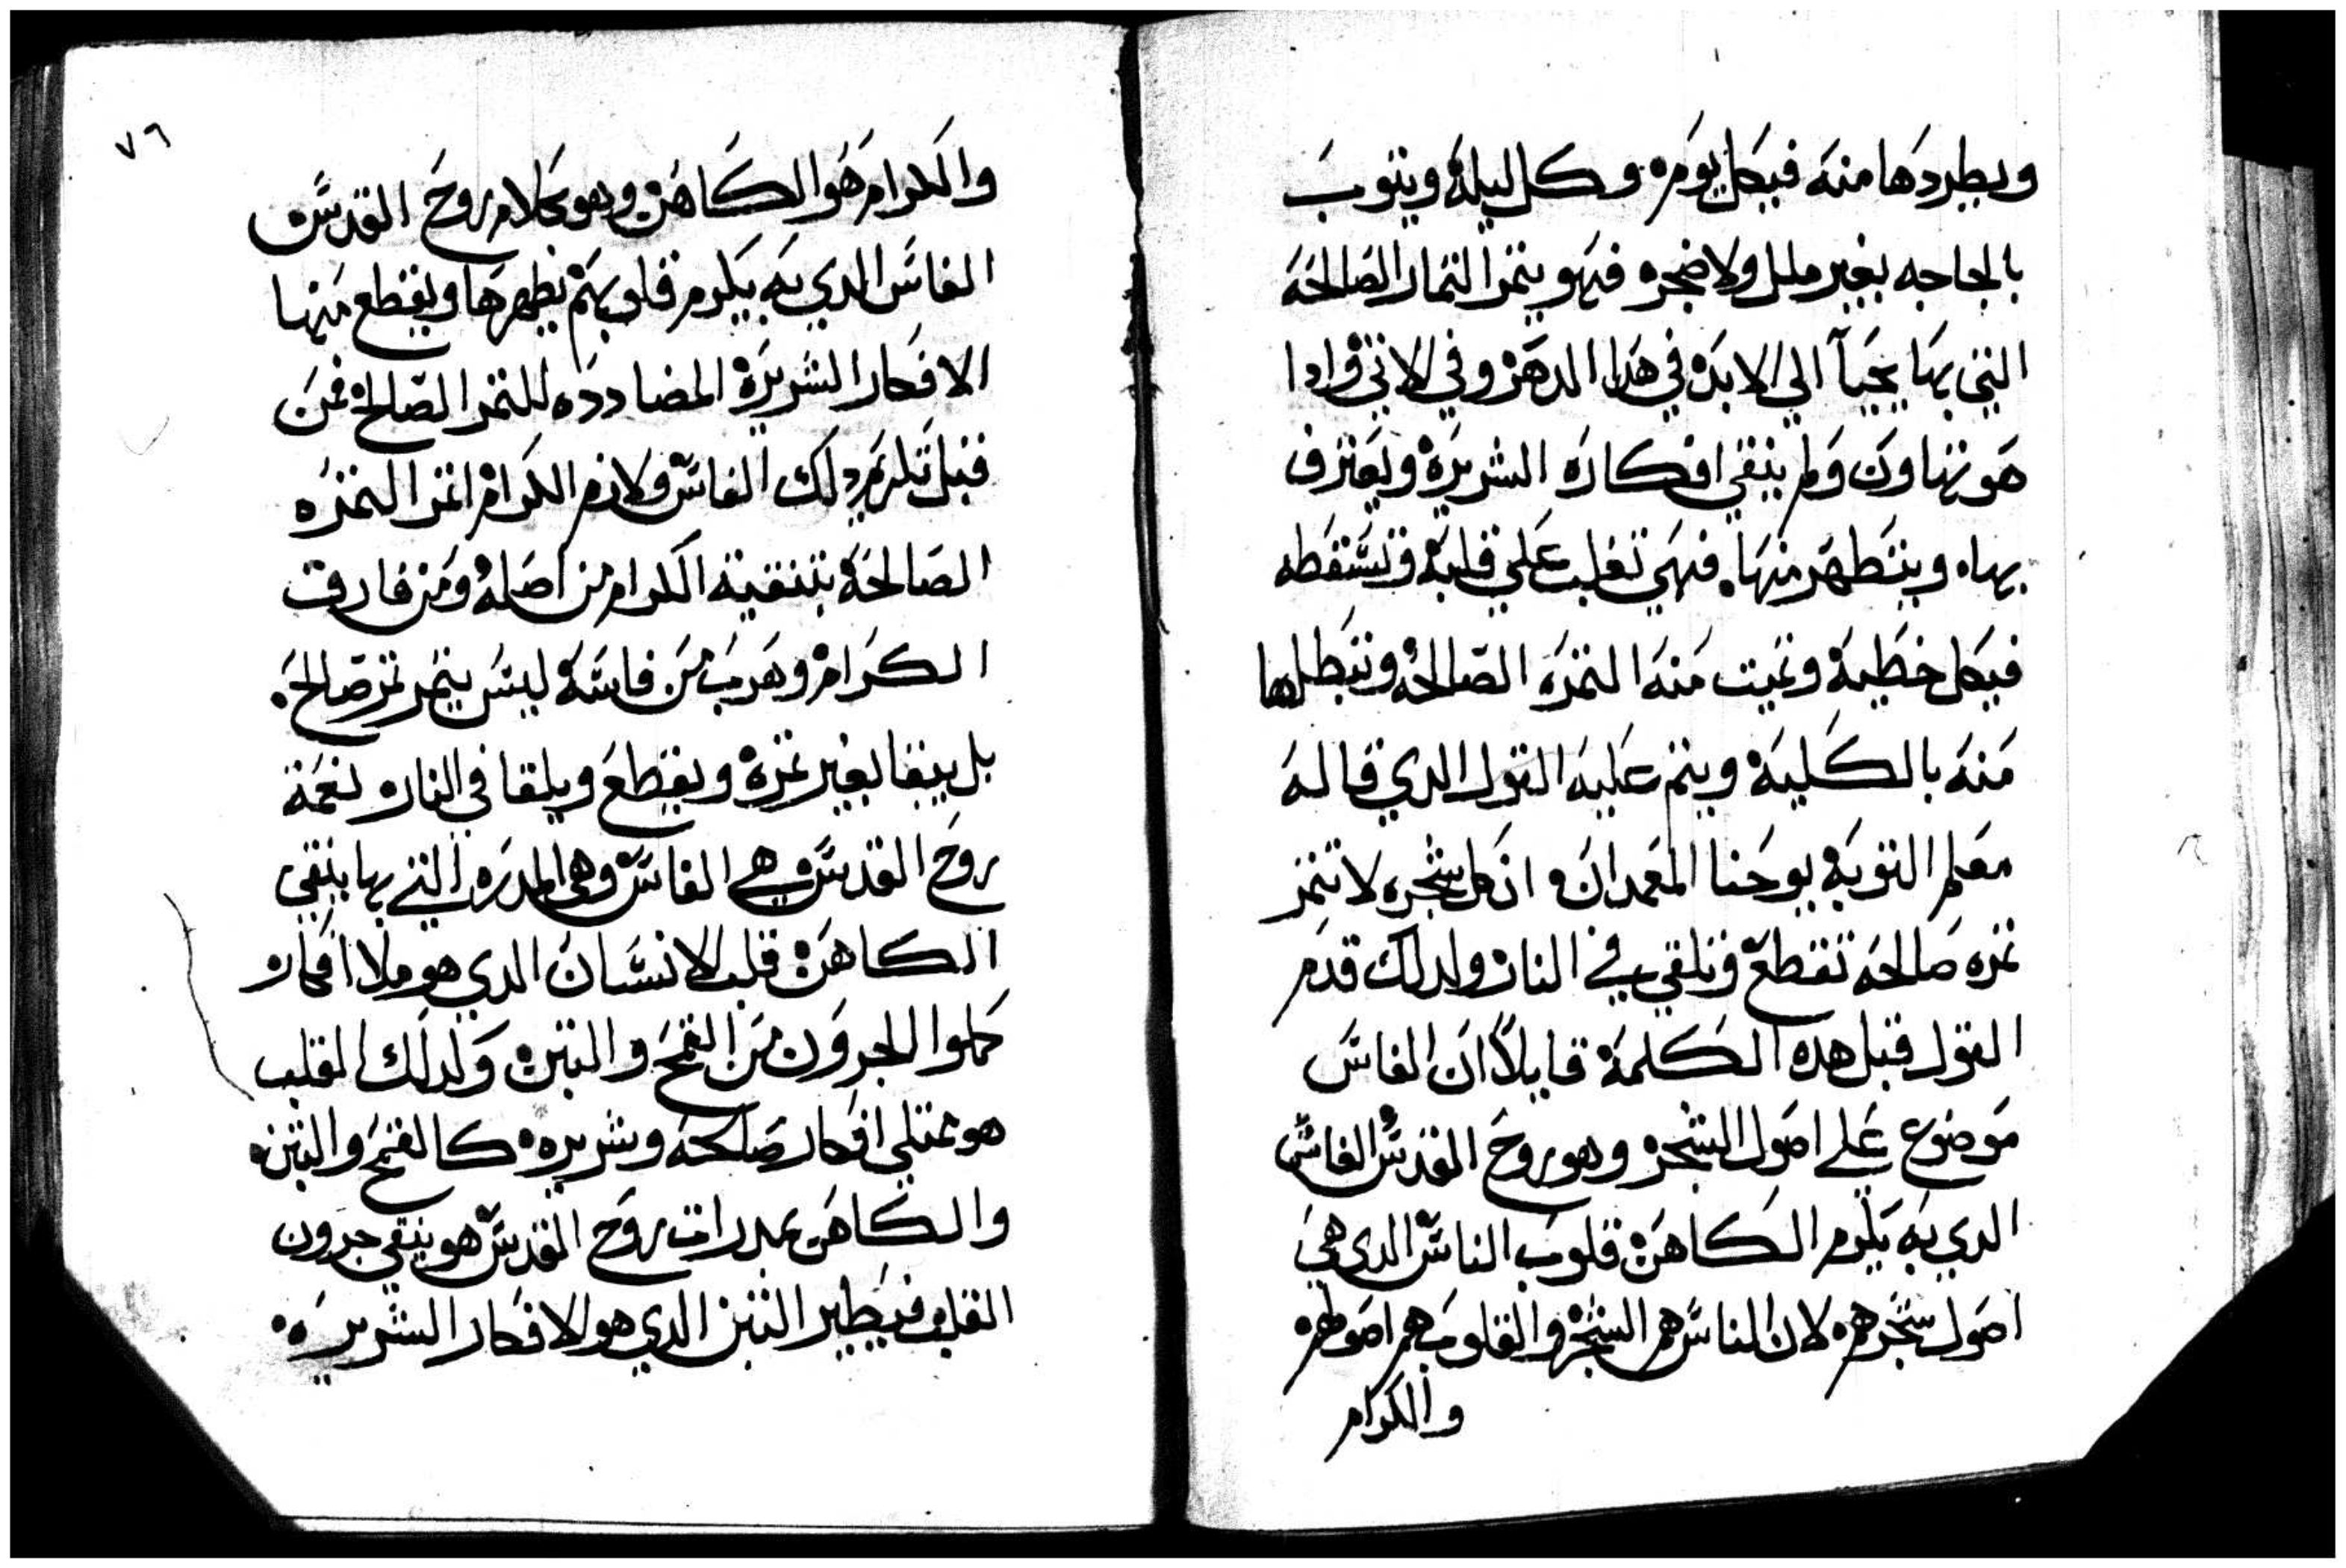 ويطردها منه فيكل يوم٥ وكل ليلة ويتوب
بالجاجه بغير ملل ولا ضجر٥ فهو يتمر التمار الصالحة
التي بها يحيآ الي الابد٥ في هدا الدهر٥ وفي الاتي٥ وادا
هو تهاون ولم ينقي افكاره الشريرة ويعترف
بها٥ ويتطهر منها. فهي تغلب علي قلبه وتسقطه
فيكل خطية وتميت منه التمره الصالحة وتبطلها
منه بالكلية ويتم عليه القول الدي قاله
معلم التوبة يوحنا المعمدان٥ ان كل شجره لا تتمر
تمره صالحه تقطع وتلقي في النار ولدلك قدم
القول قبل هده الكلمة قايلاً ان الفاس
موضوع علي اصول الشجر٥ وهو روح القدس الفاس
الدي به يكرم الكاهن٥ قلوب الناس الدي هي
اصول شجرهم٥ لان الناس هم الشجر٥ والقلوب هم اصولهم٥
والكرام
٧٦
والكرام هو الكاهن وهو بكلام روح القدس
الفاس الدي به يكرم قلوبهم يطهرها ويقطع منها
الافكار الشريرة المضادده للتمر الصالح فمن
قبل تكريم دلك الفاس ولازم الكرام٥ اتمر التمره
الصالحة بتنقية الكرام من اصله ومن فارق
الكرام٥ وهرب من فاسه ليس يتمر تمر صالح.
بل يبقا بغير تمرة ويقطع ويلقا في النار٥ نعمة
روح القدس هي الفاس وهي المدره التي بها ينقي
الكاهن٥ قلب الانسان الدي هو ملا افكار
كملوا الجرون من القمح والتبن٥ ولدلك القلب
هو ممتلي افكار صالحه وشريره٥ كالقمح والتبن٥
والكاهن بمدرات روح القدس هو ينقي جرون
القلب فيطير التبن الدي هو الافكار الشريره٥